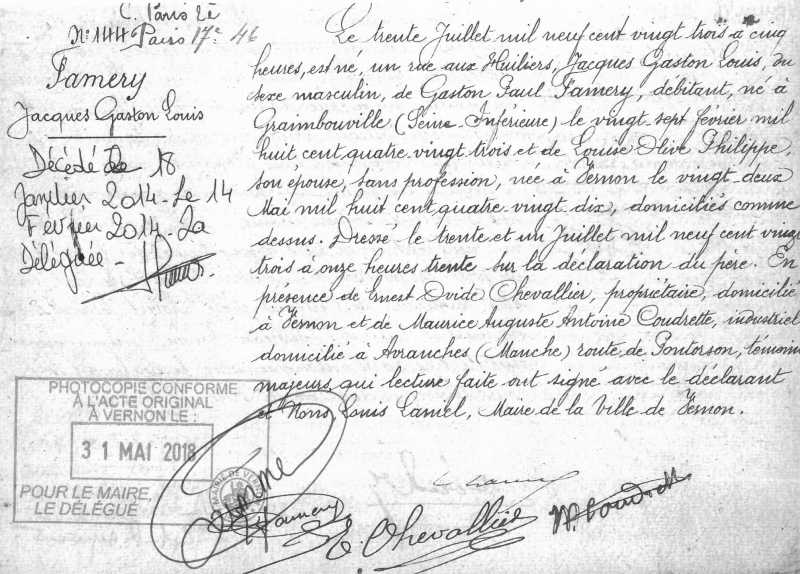 C. Paris 2è
N° 144 Paris 17e 46
Famery
Jacques Gaston Louis
Décédé le 18
Janvier 2014 - Le 14
Février 2014 - La
Déléguée -
Le trente Juillet mil neuf cent vingt trois à cinq
heures, est né, un rue aux Huiliers, Jacques Gaston Louis, du
sexe masculin, de Gaston Paul Famery, débitant, né à
Graimbouville (Seine-Inférieure) le vingt-sept février mil
huit cent quatre-vingt trois et de Louise Olive Philippe,
son épouse, sans profession, née à Vernon le vingt-deux
Mai mil huit cent quatre-vingt-dix, domiciliés comme
dessus. Dressé le trente et un Juillet mil neuf cent vingt
trois à onze heures trente sur la déclaration du père. En
présence de Ernest Ovide Chevallier, propriétaire, domicilié
à Vernon et de Maurice Auguste Antoine Coudrette, industriel
domicilié à Avranches (Manche) route de Pontorson, témoins
majeurs, qui lecture faite ont signé avec le déclarant
et Nous, Louis Laniel, Maire de la Ville de Vernon.
PHOTOCOPIE CONFORME
À L'ACTE ORIGINAL
À VERNON LE :
31 MAI 2018
POUR LE MAIRE,
LE DÉLÉGUÉ
MAIRIE DE
E. Chevallier